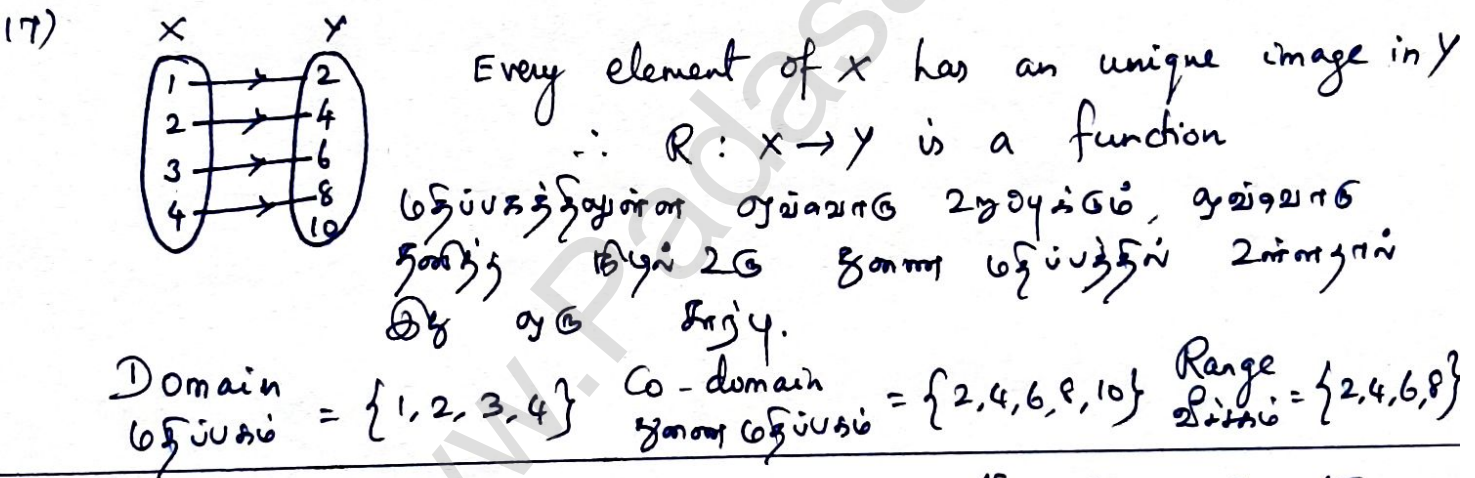 17)
X Y
1 2
2 4
3 6
4 8
10
Every element of X has an unique image in Y
∴ R : X → Y is a function
மதிப்பகத்திலுள்ள ஒவ்வொரு உறுப்புக்கும், ஒவ்வொரு
தனித்த நிழல் உரு துணை மதிப்பத்தில் உள்ளதால்
இது ஒரு சார்பு.
Domain மதிப்பகம் = {1, 2, 3, 4} Co-domain துணை மதிப்பகம் = {2, 4, 6, 8, 10} Range வீச்சகம் = {2, 4, 6, 8}
www.Padas